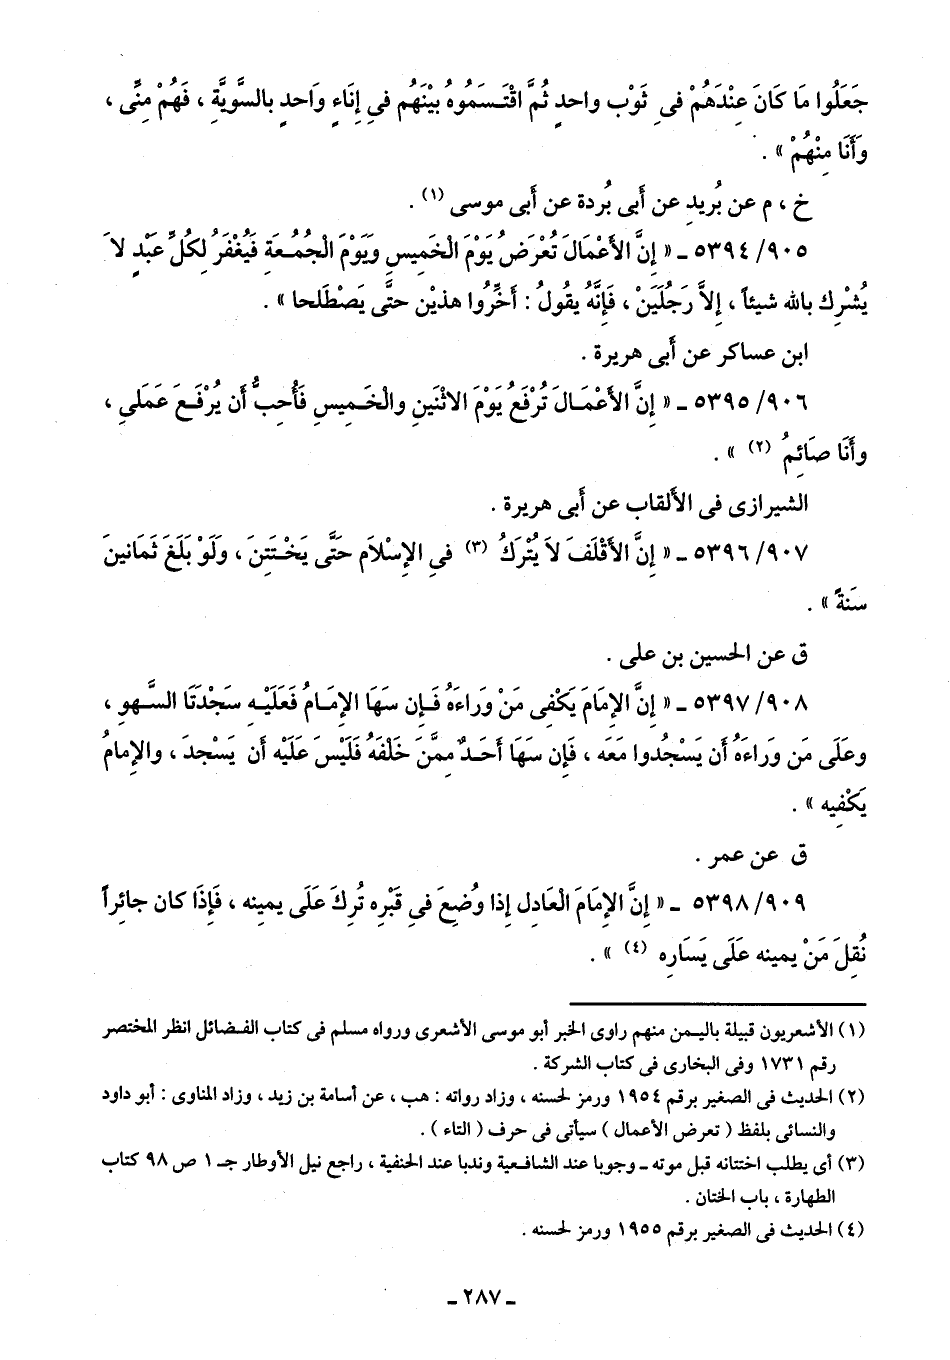 جَعَلُوا مَا كَانَ عِنْدَهُمْ فى ثَوْب واحد ثُمَّ اقْتَسَمُوهُ بيْنَهُم فِى إِنَاءٍ وَاحدٍ بالسَّويَّةِ ، فَهُمْ مِنِّى ،
وَأَنَا مِنْهُمْ » .
خ ، م عن بُريدِ عن أَبى بُردة عن أَبى موسى (١) .
٥٣٩٤/٩٠٥ ـ « إِنَّ الأَعْمَالَ تُعْرَضُ يَوْمَ الْخَمِيسِ وَيَوْمَ الْجُمُعَةِ فَيُغْفَرُ لِكُلِّ عَبْدٍ لاَ
يُشْرِك بالله شيئاً ، إِلاَّ رَجُلَيَنْ ، فَإِنَّهُ يقُولُ : أَخِّرُوا هذيْن حتَّى يَصْطَلحا » .
ابن عساكر عن أَبى هريرة .
٥٣٩٥/٩٠٦ ـ « إِنَّ الأَعْمَـالَ تُرْفَعُ يَوْمَ الاثْنَينِ والْخَمِيس فَأُحِبُّ أَن يُرْفَعَ عَمَلى ،
وأَنَا صَائِمُ (٢) » .
الشيرازى فى الأَلقاب عن أَبى هريرة .
٥٣٩٦/٩٠٧ ـ « إِنَّ الأَقْلَفَ لاَ يُتْرَكُ (٣) فى الإِسْلاَمِ حَتَّى يَخْتَتِنَ ، وَلَوْ بَلَغَ ثَمَانينَ
سنَةً » .
ق عن الحسين بن على .
٥٣٩٧/٩٠٨ ـ « إِنَّ الإِمَامَ يَكْفِى مَنْ وَرَاءَهُ فَإِن سَهَا الإِمَامُ فَعَلَيْهِ سَجْدَتَا السَّهوِ ،
وعَلَى مَن ورَاءَهُ أَن يَسْجُدُوا مَعَه ، فَإِن سهَا أَحَدٌ ممَّنَ خَلْفَهُ فَلَيْسَ عَلَيْه أَن يَسْجدَ ، والإِمامُ
يَكْفِيه » .
ق عن عمر .
٥٣٩٨/٩٠٩ ـ « إِنَّ الإِمَامَ الْعَادِل إِذا وُضِعَ فِى قَبْرِه تُرِكَ عَلَى يمِينه ، فَإِذَا كان جائِراً
نُقِلَ مَنْ يمينه عَلَى يَسَارِه (٤) » .
(١) الأشعريون قبيلة باليمن منهم راوى الخبر أبو موسى الأشعرى ورواه مسلم فى كتاب الفضائل انظر المختصر
رقم ١٧٣١ وفى البخارى فى كتاب الشركة .
(٢) الحديث فى الصغير برقم ١٩٥٤ ورمز لحسنه ، وزاد رواته : هب ، عن أسامة بن زيد ، وزاد المناوى : أبو داود
والنسائى بلفظ ( تعرض الأعمال ) سيأتى فى حرف ( التاء ) .
(٣) أى يطلب اختتانه قبل موته ـ وجوبا عند الشافعية وندبا عند الحنفية ، راجع نيل الأوطار جـ ١ ص ٩٨ كتاب
الطهارة ، باب الختان .
(٤) الحديث فى الصغير برقم ١٩٥٥ ورمز لحسنه .
ـ ٢٨٧ ـ